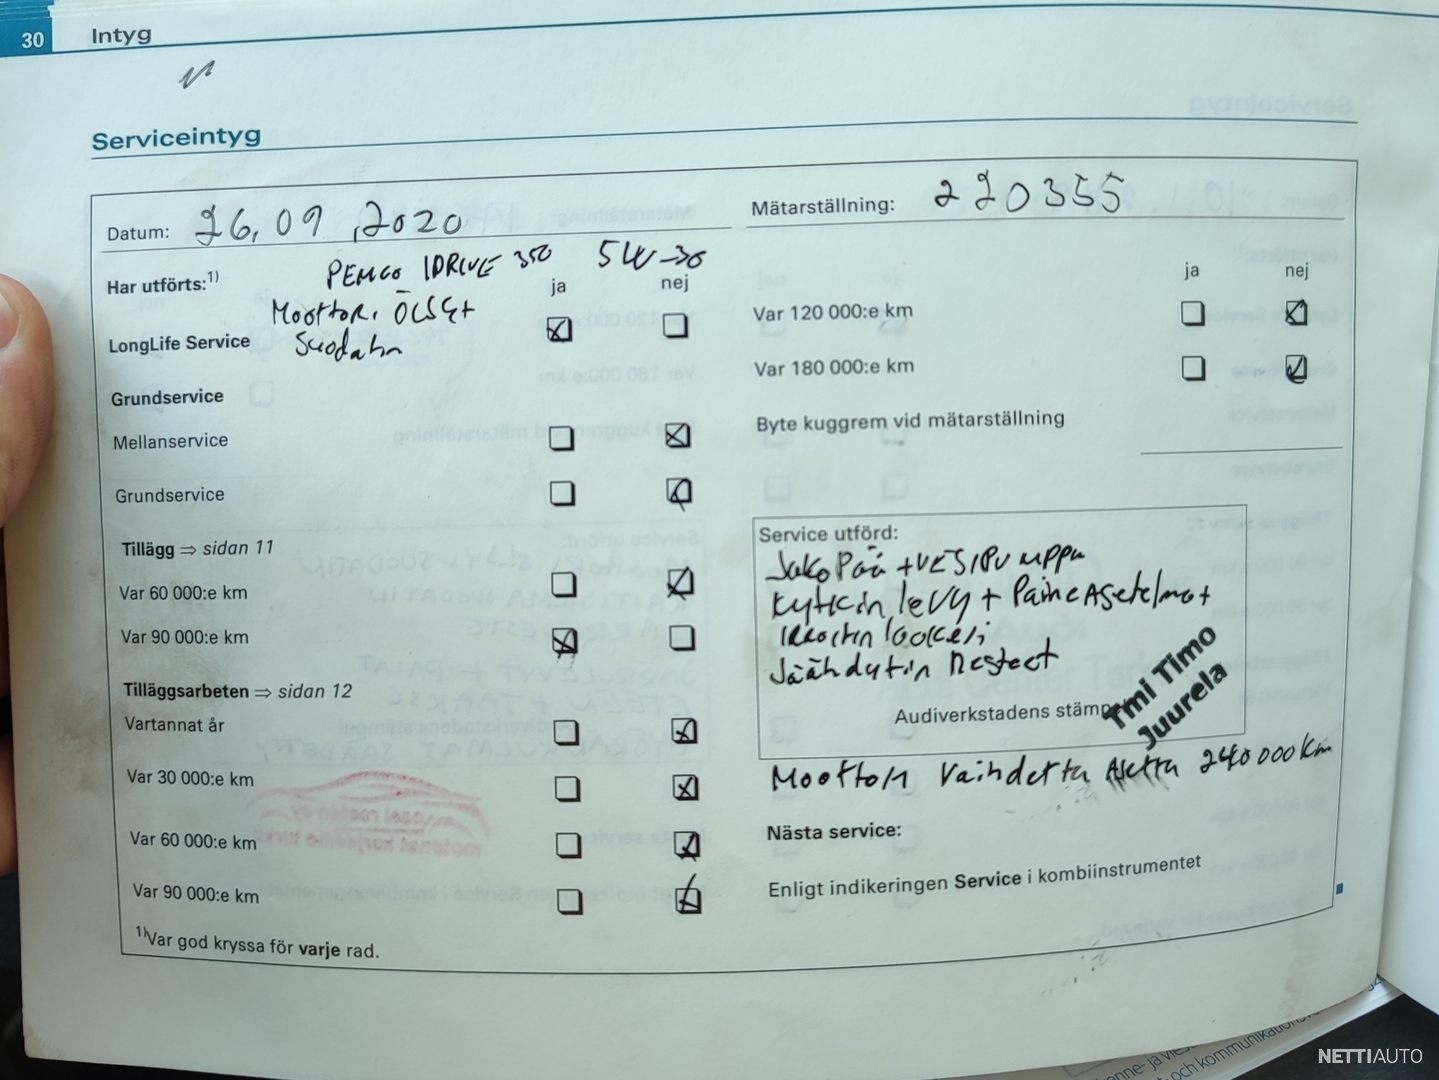 30 Intyg
Serviceintyg
Datum: 26.09.2020
Mätarställning: 220355
PEMCO IDRIVE 350 5W-30
Har utförts:1)
ja nej
Moottori ÖLJYt
LongLife Service
Suodatin
Grundservice
Mellanservice
Grundservice
Tillägg ⇒ sidan 11
Var 60 000:e km
Var 90 000:e km
Tilläggsarbeten ⇒ sidan 12
Vartannat år
Var 30 000:e km
Var 60 000:e km
Var 90 000:e km
1)Var god kryssa för varje rad.
ja nej
Var 120 000:e km
Var 180 000:e km
Byte kuggrem vid mätarställning
Service utförd:
Jako Pää + VESIPUmppu
Kytkin leVy + PaineAsetelmat
laakeri
Jäähdytin nesteet
Audiverkstadens stämpel
Tmi Timo
Juurela
Moottori Vaihdettu 240 000 Km
Nästa service:
Enligt indikeringen Service i kombiinstrumentet
NETTIAUTO